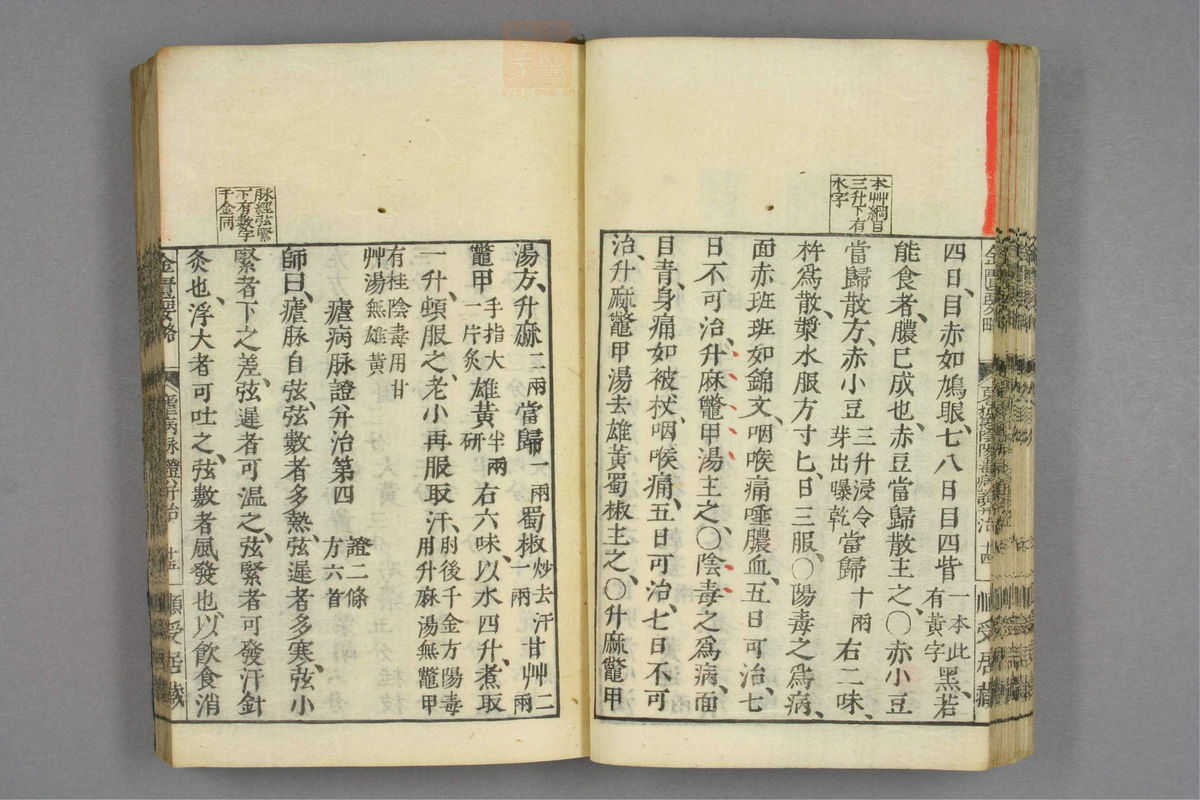 本艸綱目
三升下有
水字
四日、目赤如鳩眼、七八日目四眥一本此有黃字黑、若
能食者、膿已成也、赤豆當歸散主之、〇赤小豆
當歸散方、赤小豆三升浸令芽出曝乾當歸十兩右二味、
杵爲散、漿水服方寸匕、日三服、〇陽毒之爲病、
面赤班班如錦文、咽喉痛唾膿血、五日可治、七
日不可治、升麻鼈甲湯主之、〇陰毒之爲病、面
目青、身痛如被杖、咽喉痛、五日可治、七日不可
治、升麻鼈甲湯去雄黃蜀椒主之、〇升麻鼈甲
脉經弦緊
下有數字
千金同
湯方、升麻二兩當歸一兩蜀椒炒去汗一兩甘艸二兩
鼈甲手指大一片灸雄黃半兩研右六味、以水四升、煮取
一升、頓服之、老小再服取汗、肘後千金方陽毒用升麻湯無鼈甲
有桂陰毒用甘艸湯無雄黃
瘧病脉證幷治第四　證二條方六首
師曰、瘧脉自弦、弦數者多熱、弦遲者多寒、弦小
緊者下之差、弦遲者可温之、弦緊者可發汗針
灸也、浮大者可吐之、弦數者風發也、以飲食消
金匱要略　瘧病脉證幷治　順受居藏